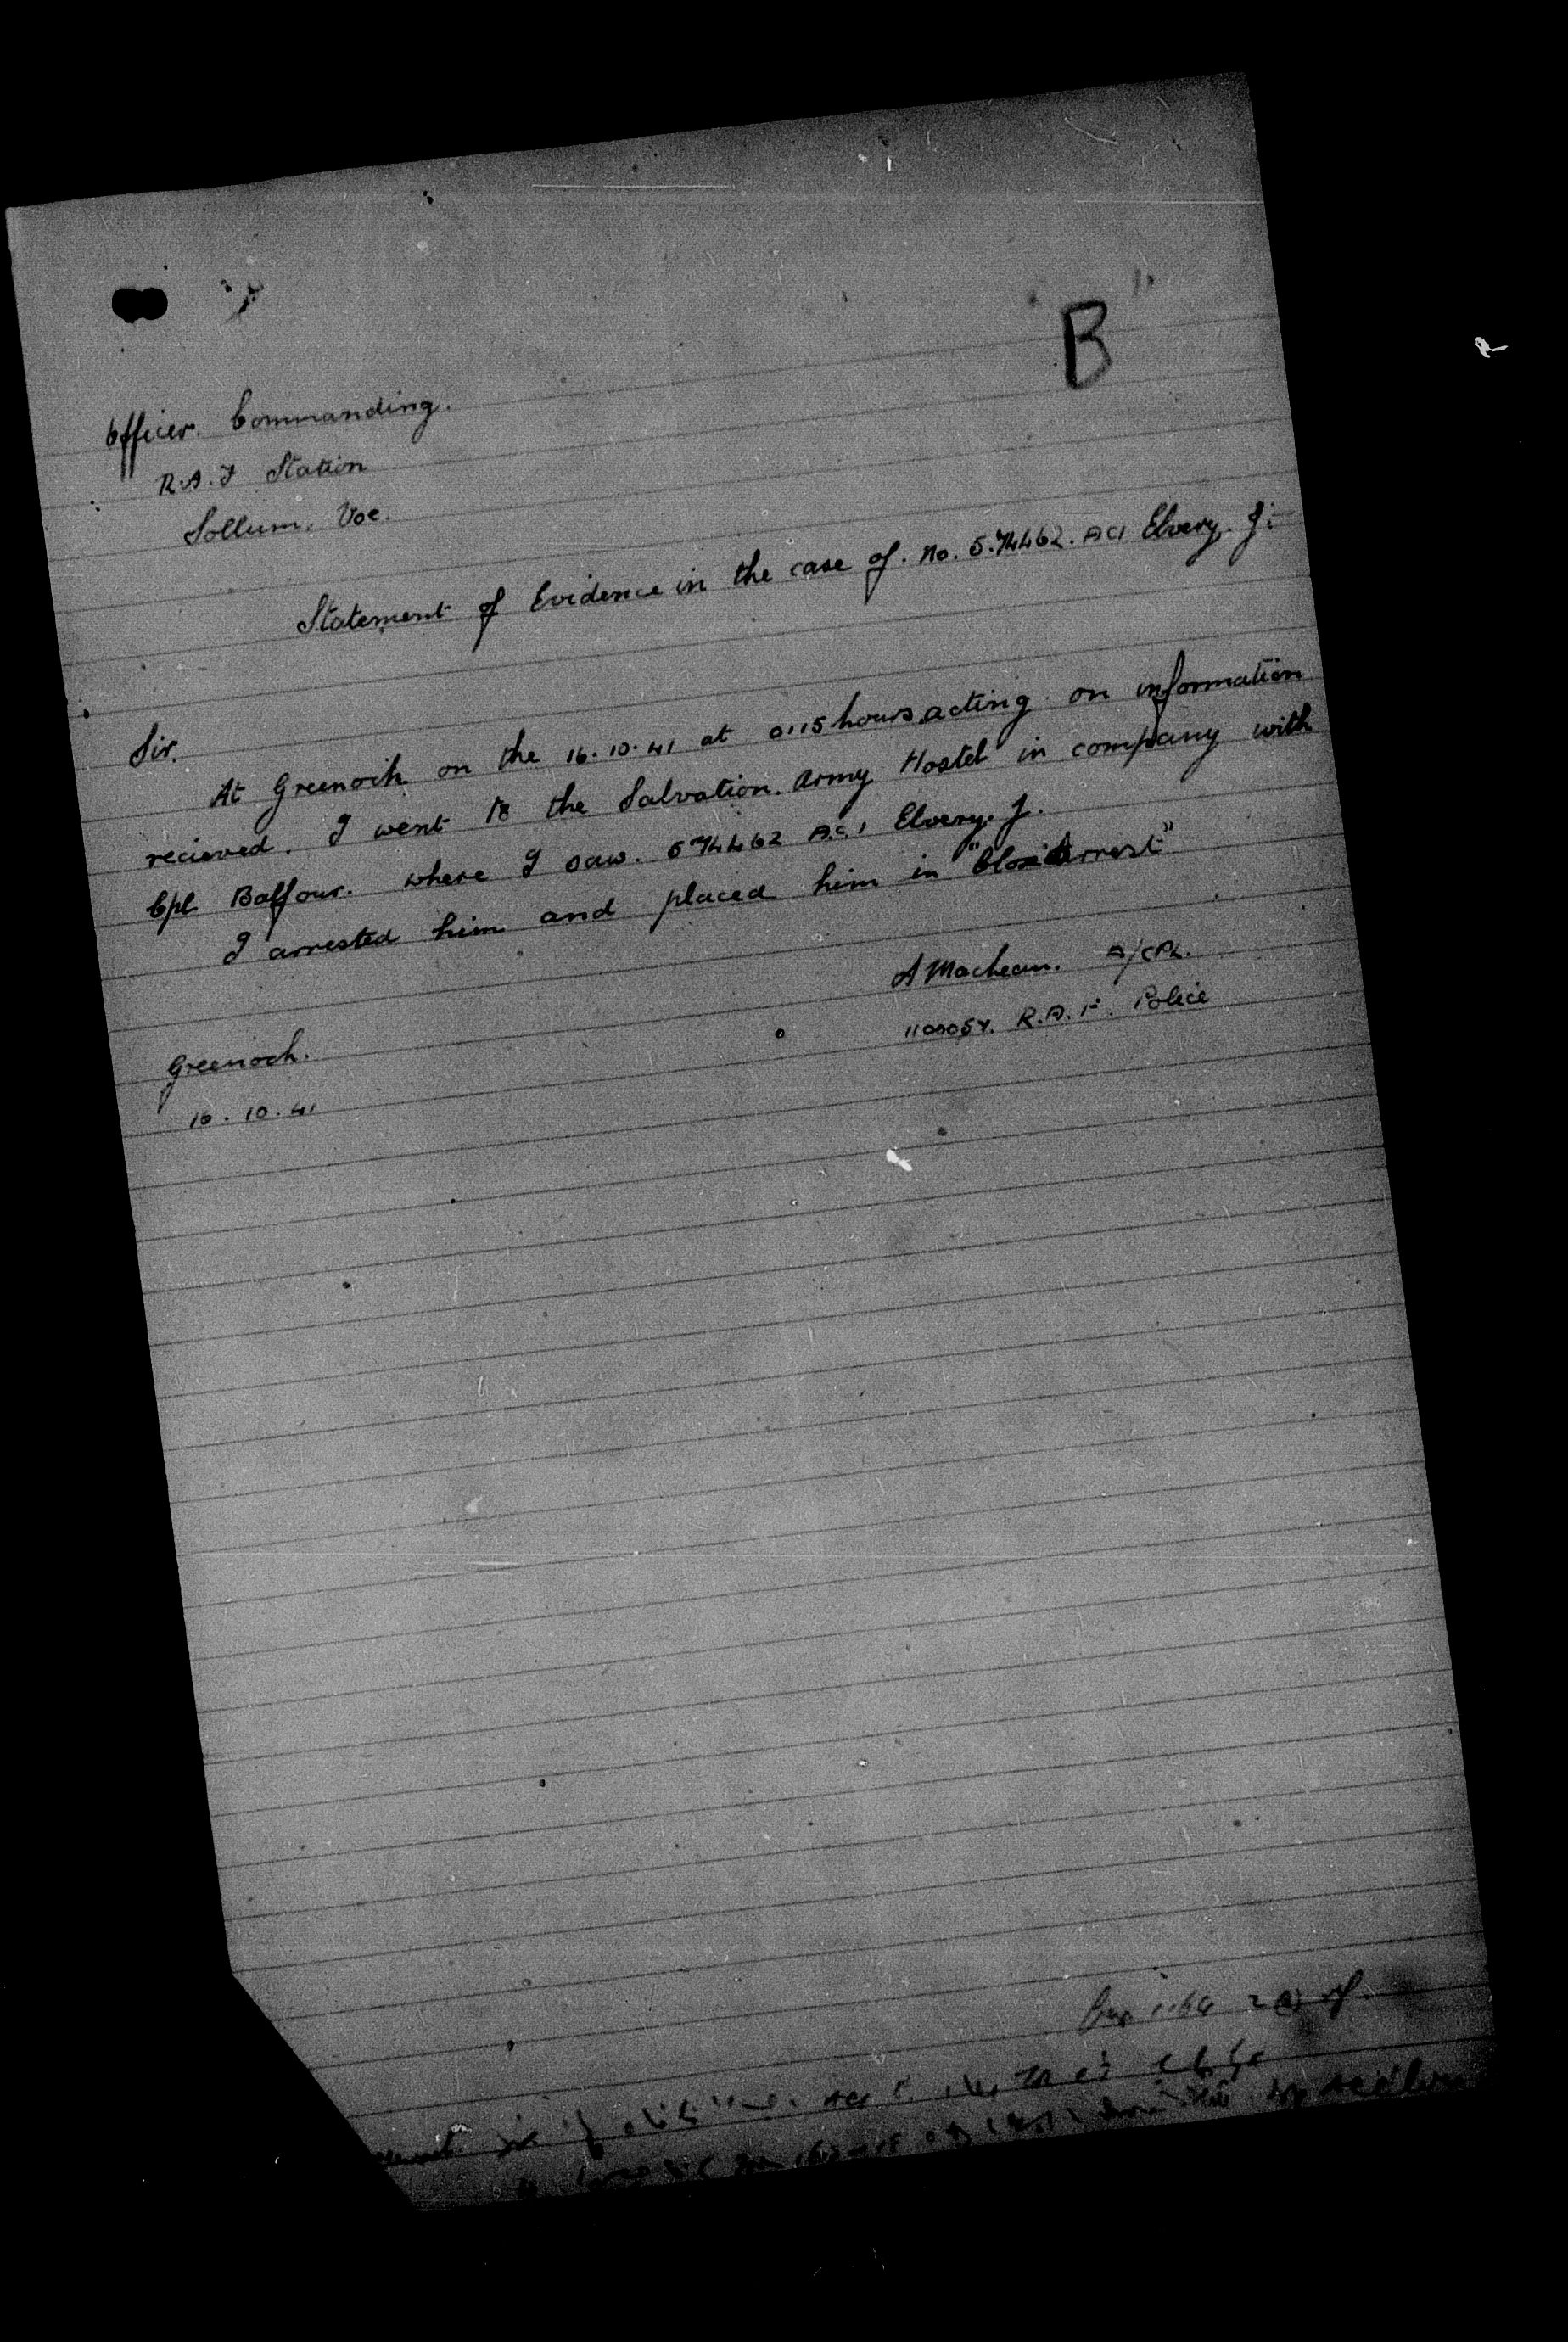 "B"
Officer. Commanding.
R.A.F Station
Sollum. Voe.
Statement of Evidence in the case of. No. 574462. AC1 Elvery. J:
Sir.
At Greenock on the 16.10.41 at 0115 hours acting on information
recieved. I went to the Salvation. Army Hostel in company with
Cpl Balfour. where I saw. 574462 A.C.1 Elvery. J.
I arrested him and placed him in "Close Arrest"
A MacLean. A/CPL.
R.A.F. Police
Greenock.
16.10.41